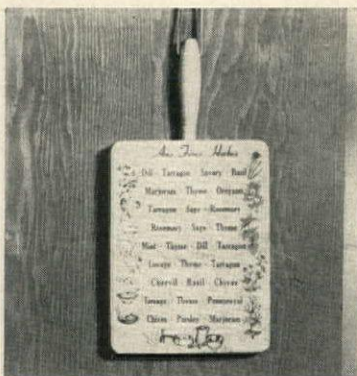 Aux Fines Herbes
Dill Tarragon Savory Basil
Marjoram Thyme Oregano
Tarragon Sage Rosemary
Rosemary Sage Thyme
Mint Thyme Dill Tarragon
Lovage Thyme Tarragon
Chervil Basil Chives
Lovage Thyme Pennyroyal
Chives Parsley Marjoram